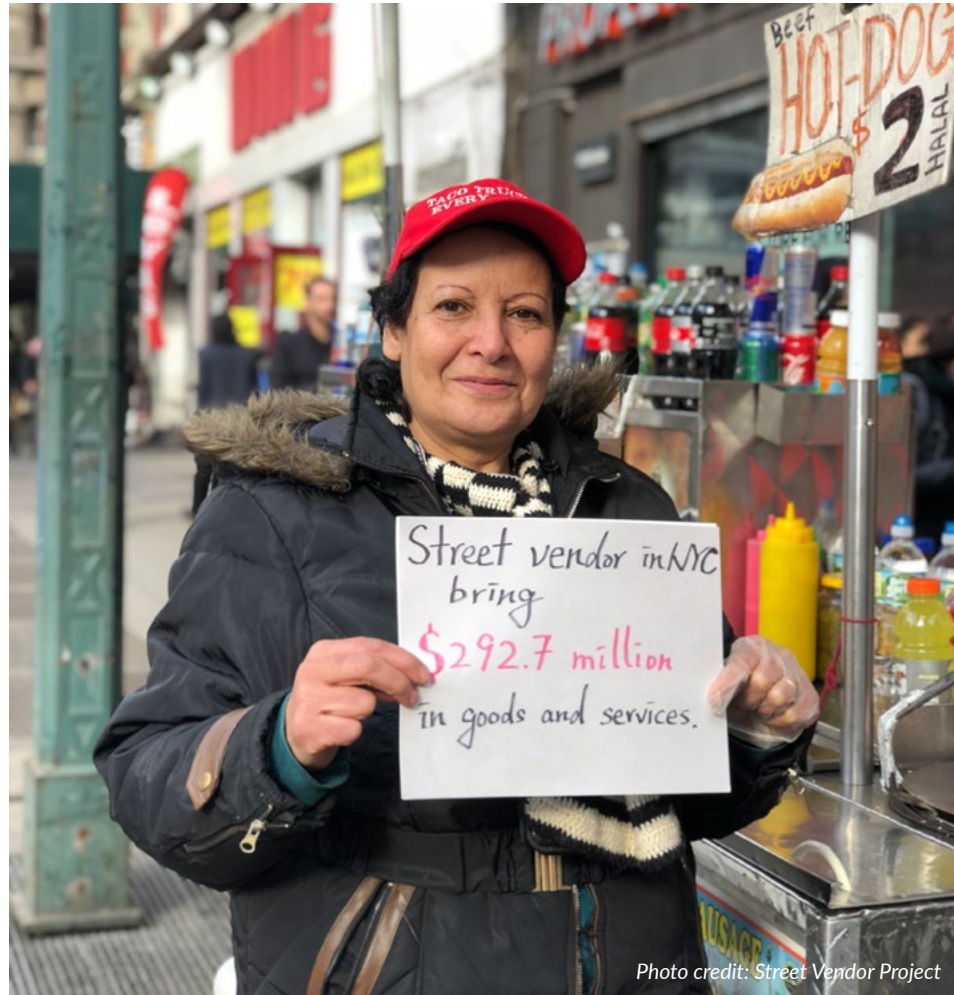 Beef
HOT-DOG
$2
HALAL
TACO TRUC
EVERY
Street vendor in NYC
bring
$292.7 million
in goods and services.
AUSAGE
Photo credit: Street Vendor Project